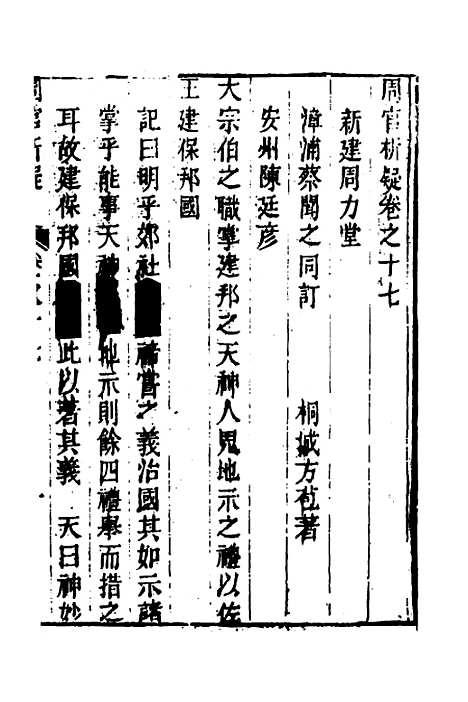 周官析疑卷之十七
新建周力堂
漳浦蔡聞之同訂 桐城方苞著
安州陳廷彥
大宗伯之職掌建邦之天神人鬼地示之禮以佐
王建保邦國
記曰明乎郊社 禘嘗之義治國其如示諸
掌乎能事天神 地示則餘四禮舉而措之
耳故建保邦國 此以著其義 天曰神妙
周官析疑 卷之十七 一